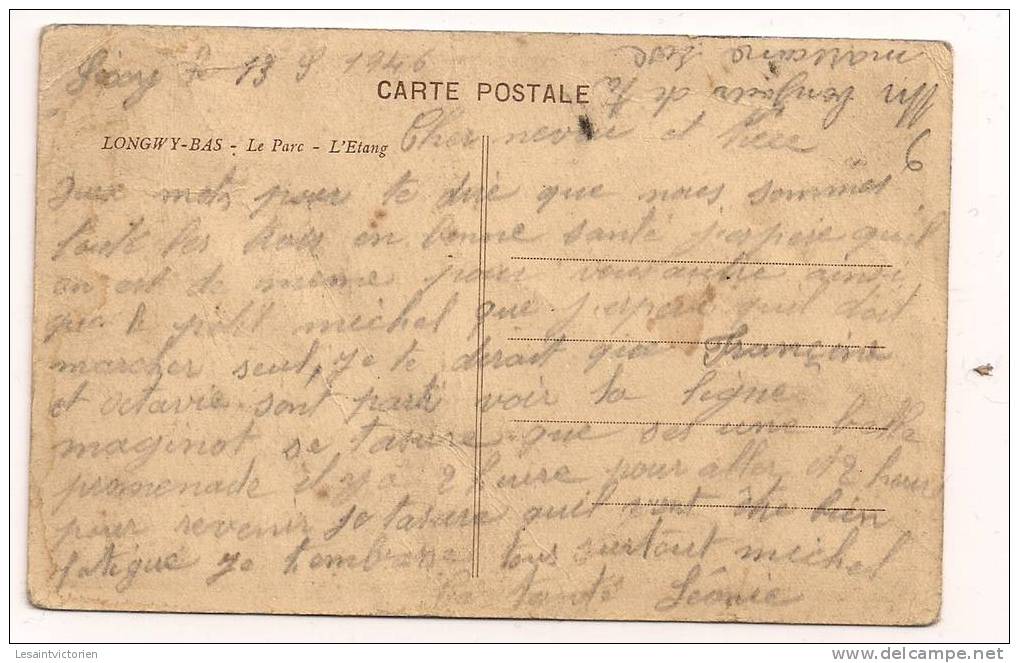 le 13 9 1946
Un bonjour de ta
marraine
CARTE POSTALE
LONGWY-BAS - Le Parc - L'Etang
Cher neveu et niece
deux mots pour te dire que nous sommes
toute les trois en bonne santé j'espère quil
en est de meme pour vous autre ainsi
que le petit michel que j'espere quil doit
marcher seul, je te dirait que Françine
et Octavie sont parti voir la ligne
maginot je tasure que ses une belle
promenade il y a 2 heure pour aller et 2 heure
pour revenir je tasure quil vont être bien
fatigue je tembrasse tous surtout michel
ta tante Léonie
Lesaintvictorien
delcampe.net